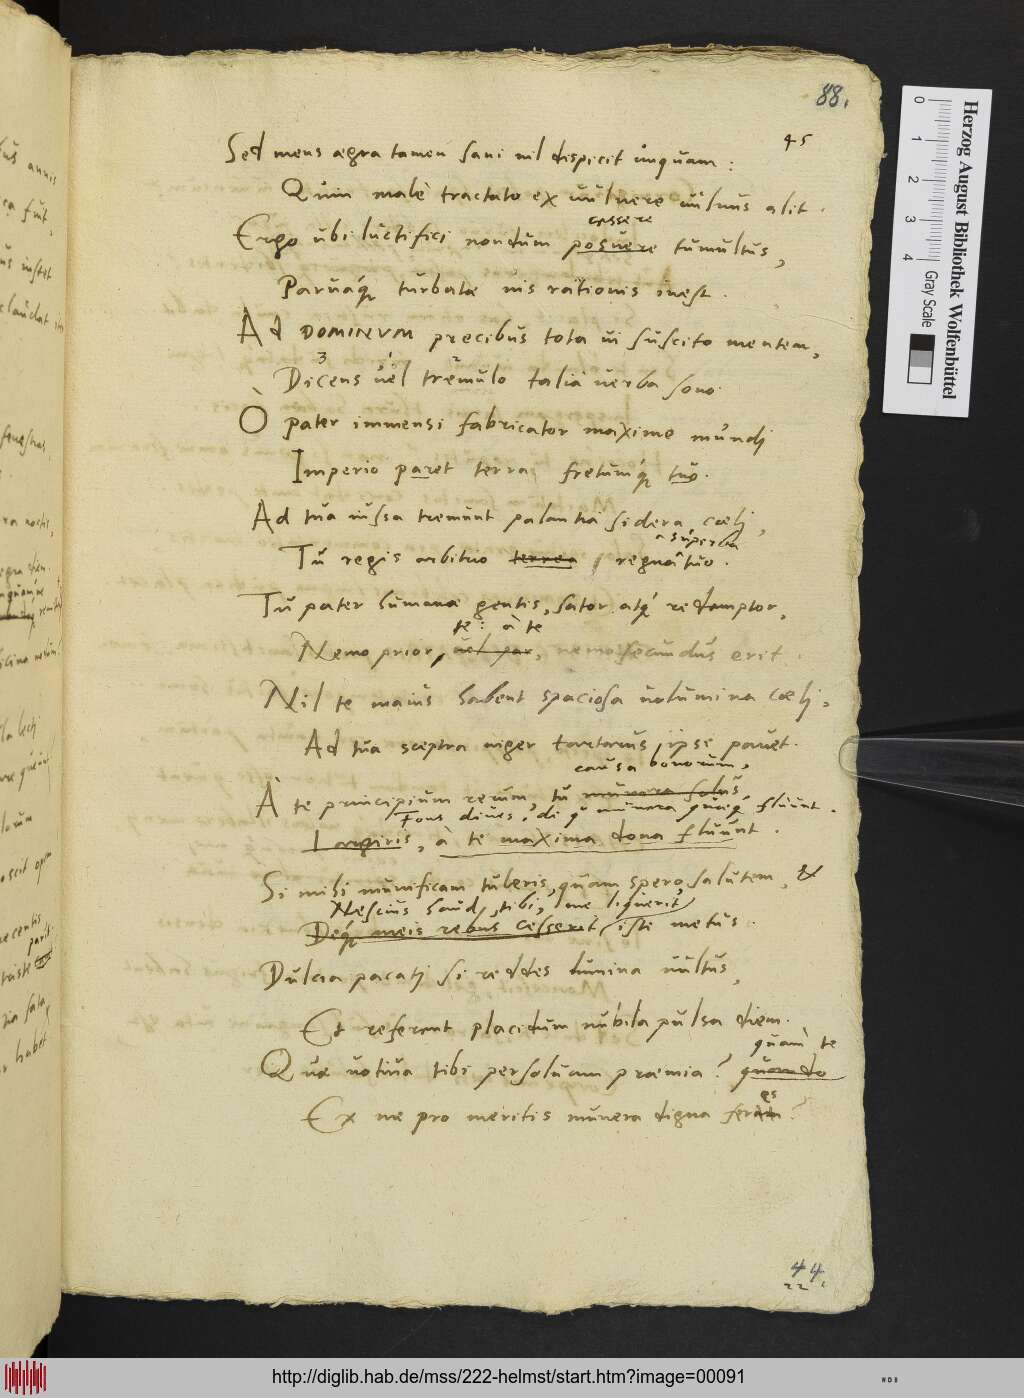 88.
45
Sed mens ægra tamen sani nil dispicit unquam:
Quin malè tractato ex vulnere vulnus alit.
cessere
Ergo ubi luctifici nondum posuere tumultus,
Parvaq́; turbatæ vis rationis inest.
Ad DOMINUM precibus tota vi suscito mentem,
3 1 2
Dicens vel tremulo talia verba sono.
Ò pater immensi fabricator maxime mundj
Imperio paret terra fretumq́; tuo.
Ad tua iussa tremunt palantia sidera cœlj,
superba
Tu regis arbitrio terrea regna tuo.
Tu pater humanæ gentis, sator atq́; redemptor,
te: à te
Nemo prior, vel par, nemo secundus erit.
Nil te maius habent spaciosa volumina cœlj,
Ad tua sceptra niger tartarus ipse pavet.
causa bonorum,
À te principium rerum, tu munera solus,
Fons dives, de q° munera quæq; fluunt.
Largiris, à te maxima dona fluunt.
Si mihi munificam tuleris, quam spero, salutem, &
Nescius haud tibi, me liquerit
Deq́; meis rebus cesserit iste metus.
Dulcia pacatj si reddes lumina vultus,
Et referent placidum nubila pulsa diem.
quam te
Quæ votiva tibi persolvam præmia? quando
es
Ex me pro meritis munera digna feram?
44
22
Herzog August Bibliothek Wolfenbüttel
0 1 2 3 4 Gray Scale
http://diglib.hab.de/mss/222-helmst/start.htm?image=00091